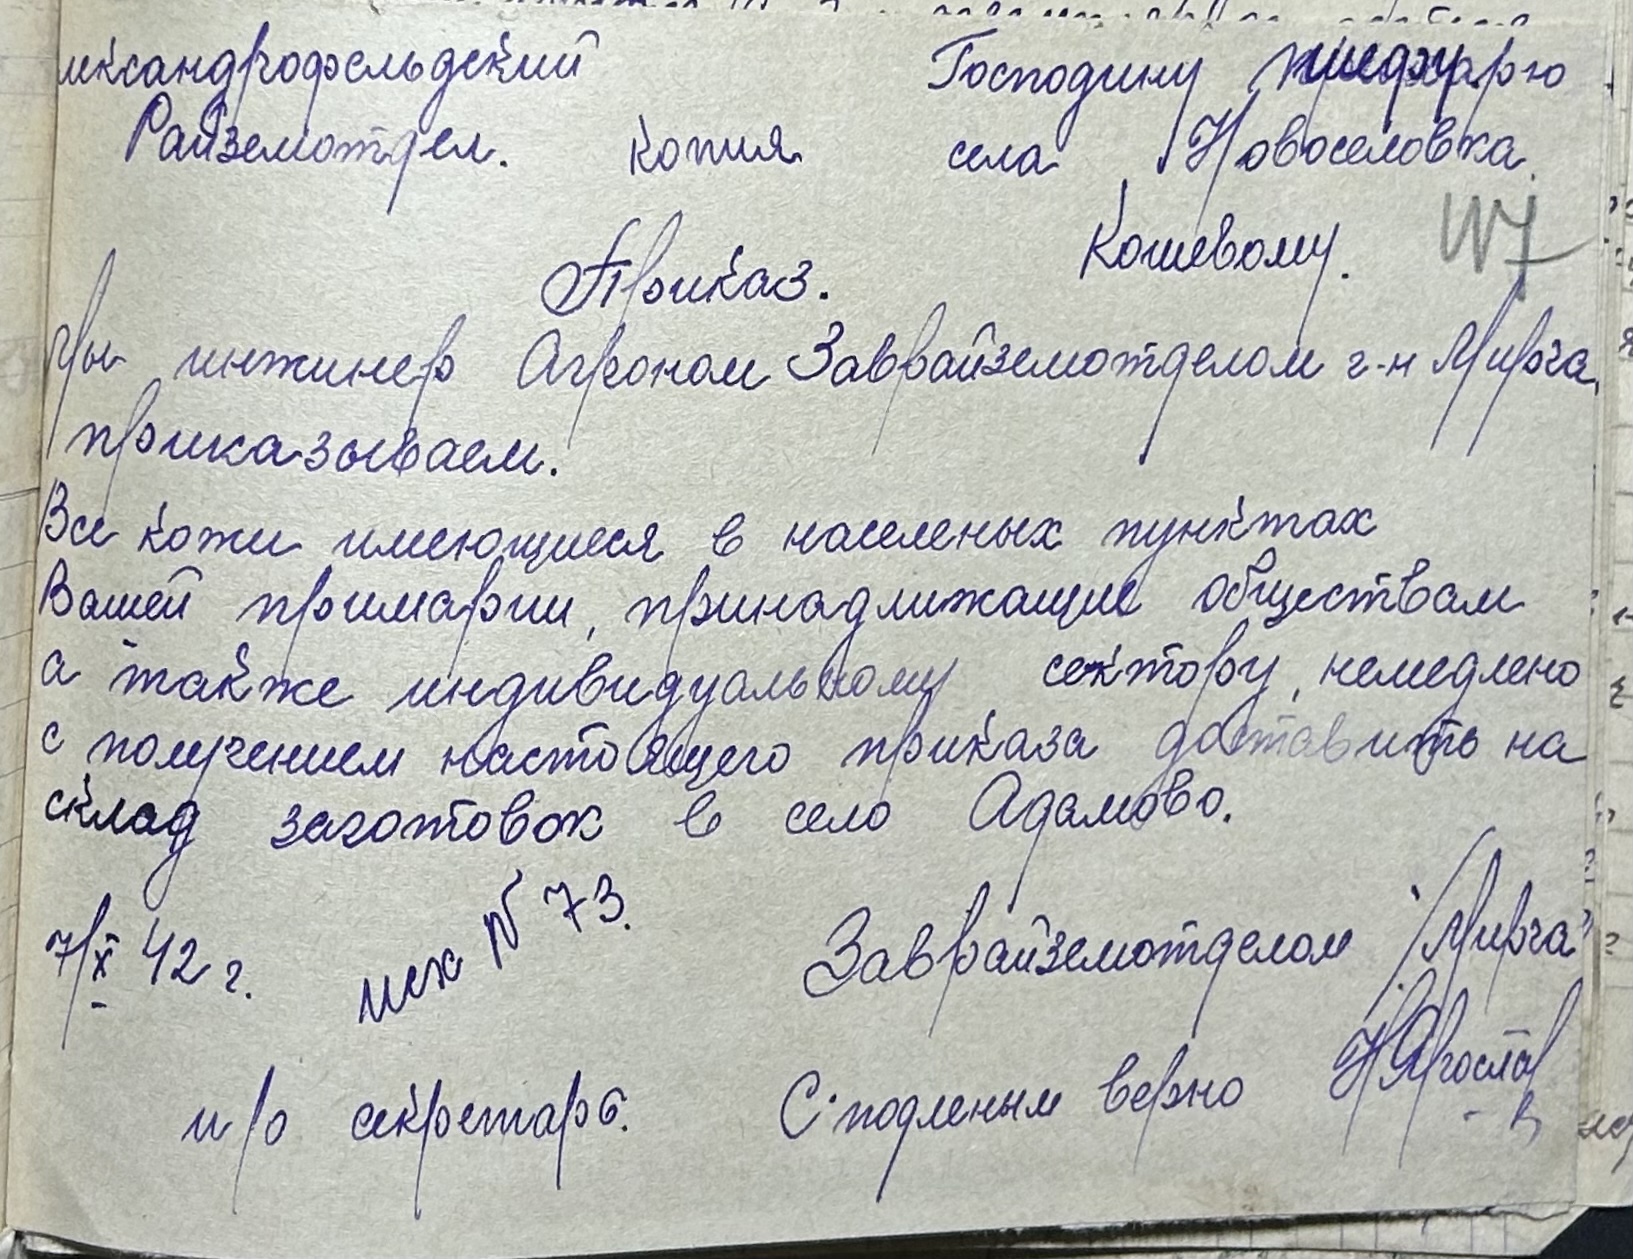 иксандрофельдский Господину
Райземотдел. копия села Новоселовка.
Кошевому.
Приказ.
Мы инжинер Агроном Заврайземотделом г-н Мирча
приказываем.
Все кожи имеющиеся в населеных пунктах
Вашей примарии, принадлижащие обществам
а также индивидуальному сектору, немедлено
с получением настоящего приказа доставить на
склад заготовок в село Адамово.
7/X 42 г. исх № 73. Заврайземотделом /Мирча
и/о секретарь. С подленым верно